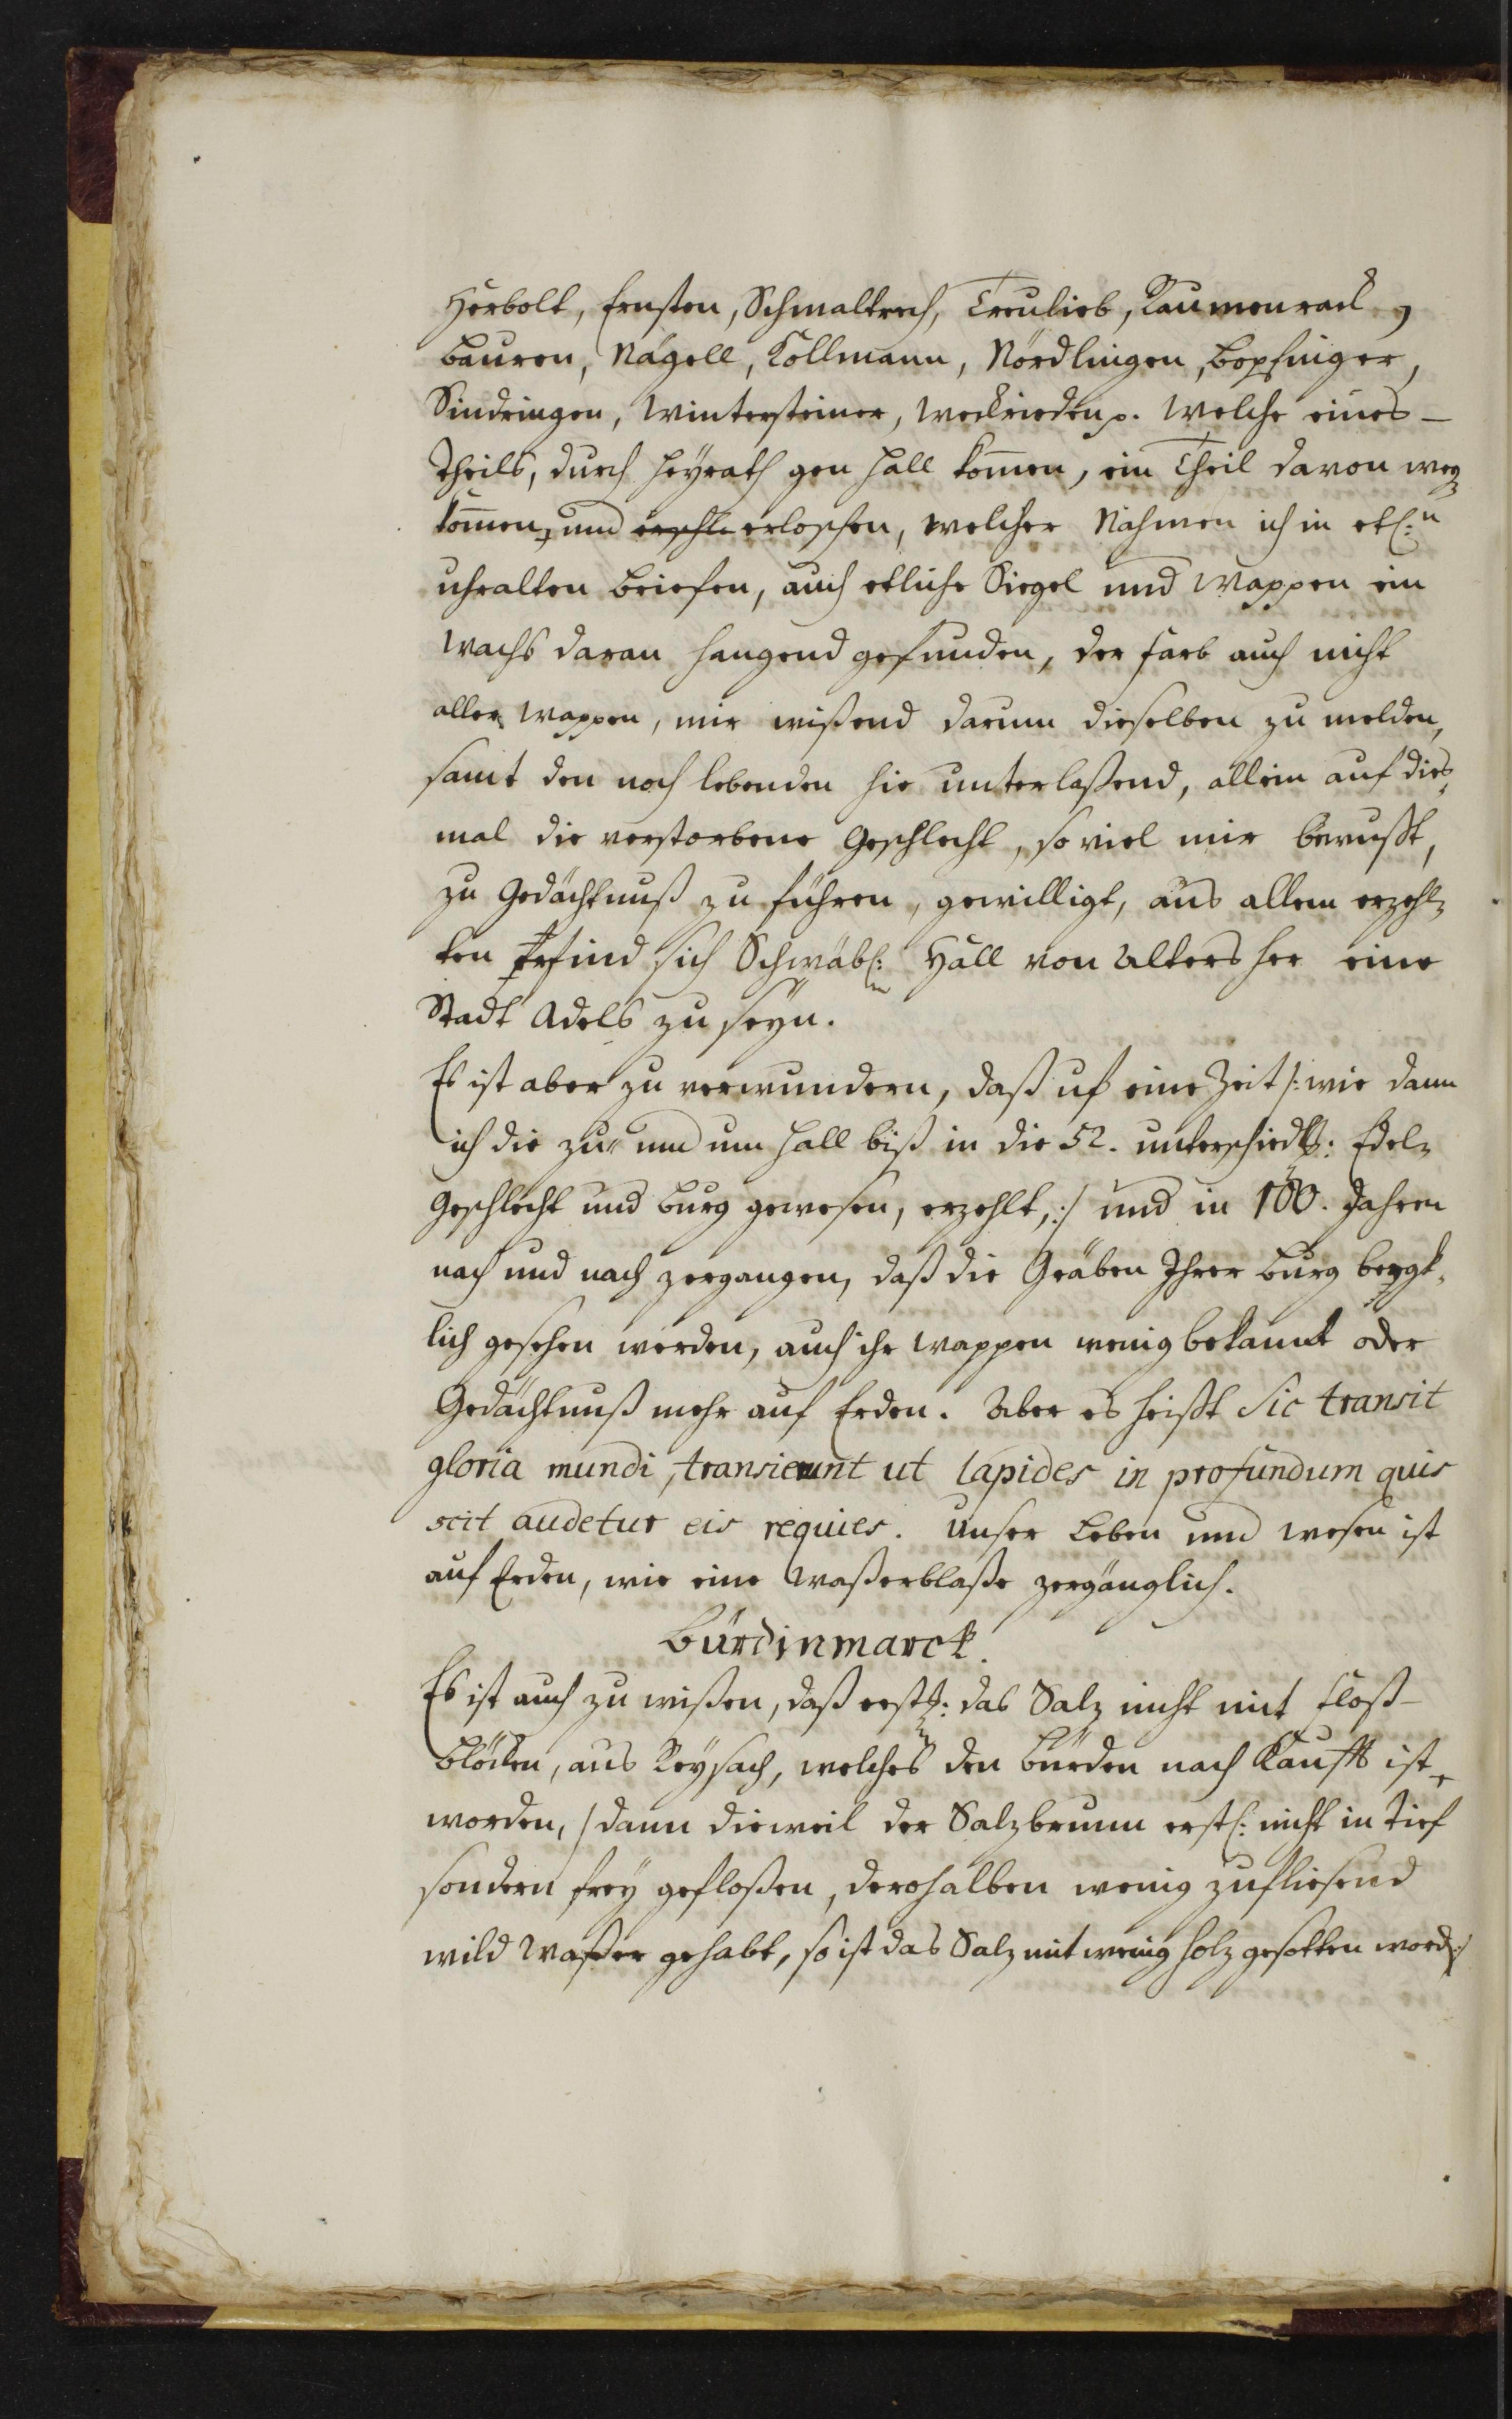 Herbolt, Ernsten, Schmaltrech, Treulieb, Raumenrad,
Bauren, Nägell, Collmann, Nördlingen, Bopfinger,
Sindringen, Wintersteiner, Weckrieden p. Welche eines
Theils, durch Heÿrath gen Hall kom̄en, ein Theil davon weg
kom̄en, und erschle erloschen, welcher Nahmen ich in etl:n
uhralten Briefen, auch etliche Siegel und Wappen ein
Wachs daran hangend gefunden, der Farb auch nicht
aller Wappen, mir wißend darum dieselben zu melden,
samt den noch lebenden hie unterlaßend, allein auf dies
mal die verstorbene Geschlecht, so viel mir bewußt,
zu Gedächtnuß zu führen, gewilligt, aus allem erzehl
ten Erfind sich Schwäb: Hall von Alters her eine
Stadt Adels zu seyn.
Es ist aber zu verwundern, daß uf eine Zeit /: wie dann
ich die zu und um Hall biß in die 52. unterschiedl: Edel
Geschlecht und Burg gewesen, erzehlt, :/ und in 100. Jahren
nach und nach zergangen, daß die Gräben Ihrer Burg
lich gesehen werden, auch ihr Wappen wenig bekannt oder
Gedächtnuß mehr auf Erden. Aber es heißt Sic transit
gloria mundi, transierunt ut lapides in profundum quis
scit audetur eis requies. Unser Leben und wesen ist
auf Erden, wie eine Waßerblaße zergänglich.
Bürdinmarck.
Es ist auch zu wißen, daß erstl: das Salz nicht mit Floß
blöcken, aus Reÿsach, welches den Bürden nach Kaufft ist
worden, / dann dieweil der Salzbrunn erstl: nicht in Tief
sondern freÿ gefloßen, derohalben wenig zufliesend
wild Waßer gehabt, so ist das Salz mit wenig Holz gesotten word:/